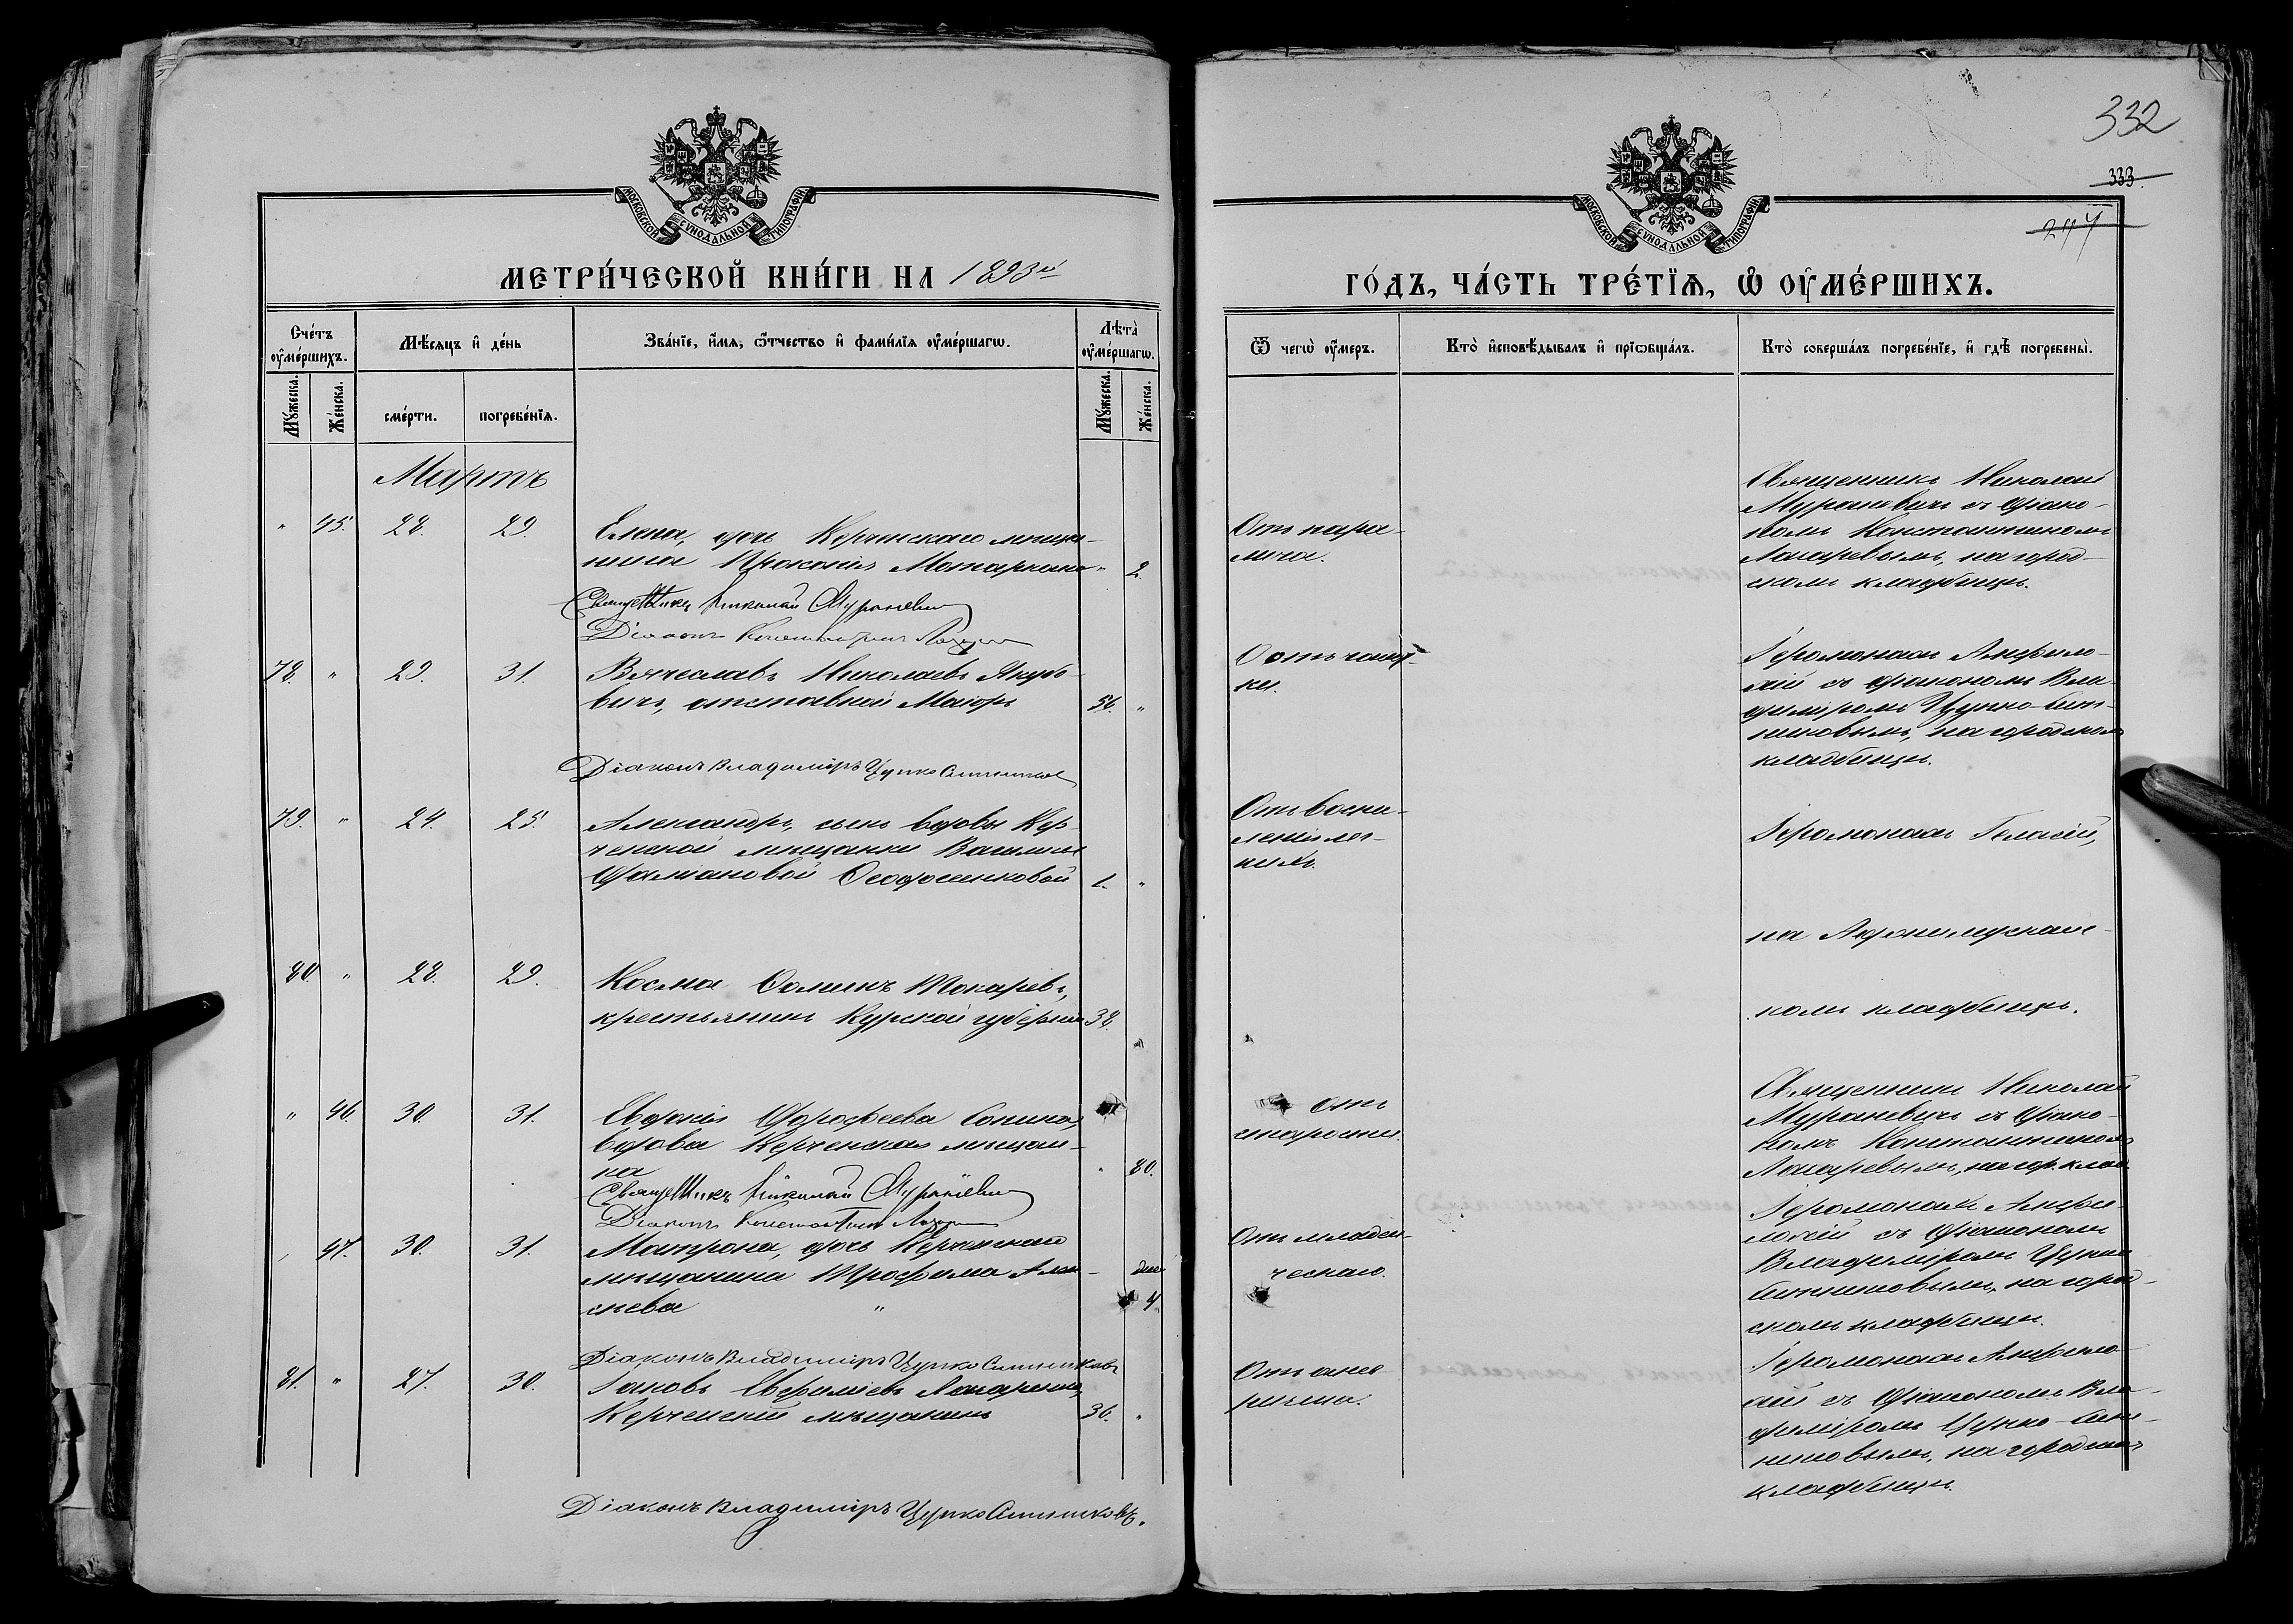 332
333.
МОСКОВСКОЙ СѴНОДАЛЬНОЙ ТИПОГРАФІИ
МЕТРИ́ЧЕСКОЙ КНИ́ГИ НА 1893й
Сче́тъ оу҆ме́ршихъ.
Мѣ́сяцъ и҆ де́нь
Зва́нїе, и҆́мя, ѻ҆́тчество и҆ фами́лїя оу҆ме́ршагѡ.
Лѣта̀ оу҆ме́ршагѡ.
Мꙋ́жеска.
Же́нска.
сме́рти.
погребе́нїѧ.
Мꙋ́жеска.
Же́нска.
Мартъ
" 45. 28. 29. Елена, дочь Керченскаго мѣща-
нина Прокопія " 2.
Священникъ Николай Мураневич
Діаконъ Константинъ Лазарев
78. " 29. 31. Вячеславъ Николаевъ Якубо-
вичъ, отставной Маіоръ 56. "
Діаконъ Владиміръ Цупко Ситников
79. " 24. 25. Александръ, сынъ вдовы Кер-
ченской мѣщанки
1. "
80. " 28. 29. Косма Ѳоминъ Токаревъ,
крестьянинъ Курской губерніи 38. "
" 46. 30. 31. Евдокія Дороѳеева
вдова Керченская мѣщан-
ка " 80.
Священникъ Николай Мураневич
Діаконъ Константинъ Лазарев
47. 30. 31. Матрона, дочь Керченскаго
мѣщанина Трофима Алек- дней
сѣева " 4.
Діаконъ Владиміръ Цупко Ситниковъ
81. " 27. 30. Іаковъ Евфиміевъ Лазаренко,
Керченскій мѣщанинъ 36. "
Діаконъ Владиміръ Цупко Ситниковъ.
МОСКОВСКОЙ СѴНОДАЛЬНОЙ ТИПОГРАФІИ
ГО́ДЪ, ЧА́СТЬ ТРЕ́ТЇѦ, Ѡ҆ ОУ҆МЕ́РШИХЪ.
Ѿ чегѡ̀ оу҆́меръ.
Кто̀ и҆сповѣ́дывалъ и҆ прїѡбща́лъ.
Кто̀ соверша́лъ погребе́нїе, и҆ гдѣ̀ погребены̀.
Отъ пара-
лича.
Священникъ Николай
Мураневичъ съ діако-
номъ Константиномъ
Лазаревымъ, на город-
скомъ кладбищѣ.
Отъ чахот-
ки.
Іеромонахъ Амфило-
хій съ діакономъ Вла-
диміромъ Цупко-Сит-
никовымъ, на городскомъ
кладбищѣ.
Отъ воспа-
ленія лег-
кихъ.
Іеромонахъ Геласій,
на
комъ кладбищѣ.
отъ
старости.
Священникъ Николай
Мураневичъ съ діако-
номъ Константиномъ
Лазаревымъ, на гор. клад.
Отъ младен-
ческаго.
Іеромонахъ Амфи-
лохій съ діакономъ
Владиміромъ Цупко
Ситниковымъ, на город-
скомъ кладбищѣ.
Отъ анев-
ризма.
Іеромонахъ Амфило-
хій съ діакономъ Вла-
диміромъ Цупко-Сит-
никовымъ, на городскомъ
кладбищѣ.